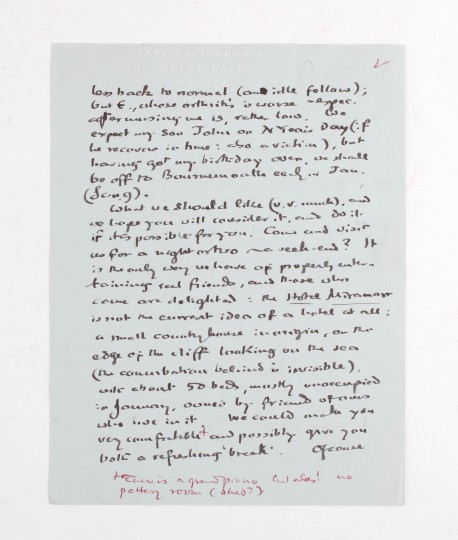 2
back to normal (an idle fellow);
but E., whose arthritis is worse espec.
after nursing me is, rather low. We
expect my son John on N Year's Day (if
he recovers in time: also a victim), but
having got my birthday over, we shall
be off to Bournemouth early in Jan.
(Jan 9).
What we should like (v.v. much), and
we hope you will consider it, and do it
if it's possible for you. Come and visit
us for a night or two – a week-end? It
is the only way we have of properly enter-
taining real friends, and those who
come are delighted: the Hotel Miramar
is not the current idea of a hotel at all:
a small country house in origin, on the
edge of the cliff looking on the sea
(the conurbation behind is invisible),
with about 50 beds, mostly unoccupied
in January, owned by friend of ours
who live in it. We could make you
very comfortable+ and possibly give you
both a refreshing 'break'. Of course
+ There is a grand piano but alas! no
pottery room (shed?)